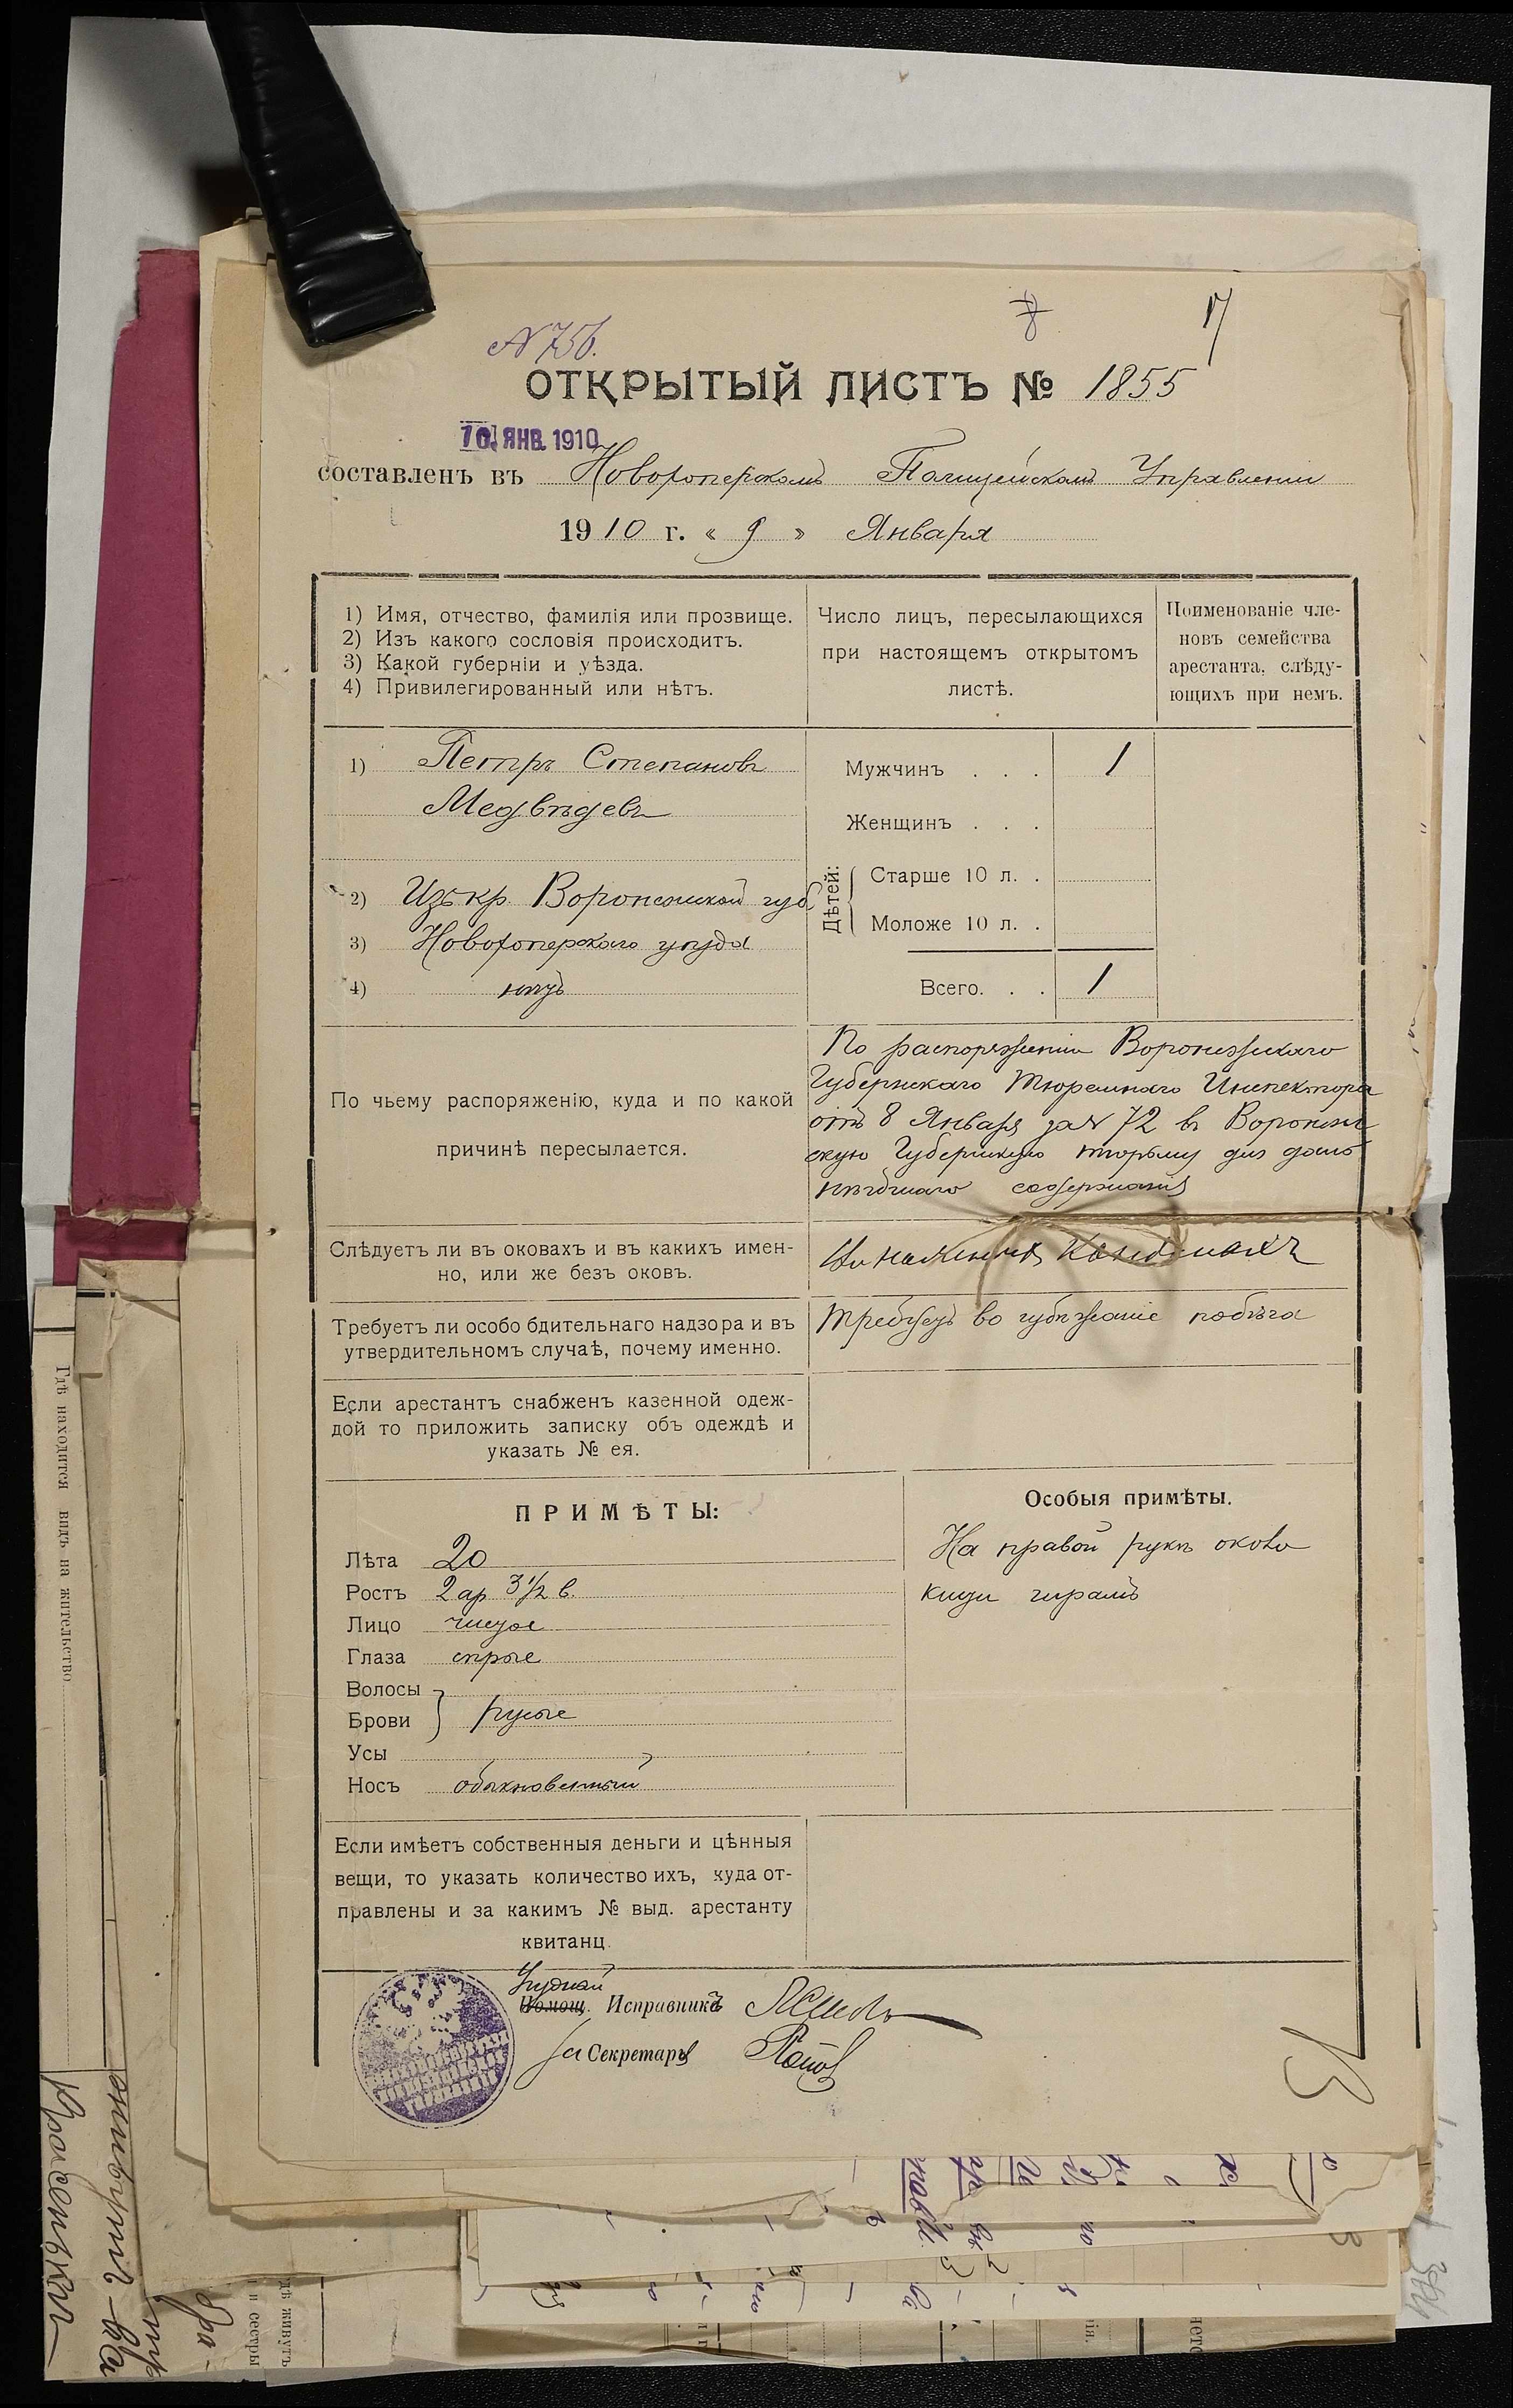 N 756.
17
ОТКРЫТЫЙ ЛИСТЪ № 1855
10 ЯНВ. 1910
составленъ въ Новохоперскомъ Полицейскомъ Управленіи
1910 г. « 9 » Января
1) Имя, отчество, фамилія или прозвище.
2) Изъ какого сословія происходитъ.
3) Какой губерніи и уѣзда.
4) Привилегированный или нѣтъ.
Число лицъ, пересылающихся
при настоящемъ открытомъ
листѣ.
Поименованіе чле-
новъ семейства
арестанта, слѣду-
ющихъ при немъ.
1) Петръ Степановъ
Медвѣдевъ
2) Изъ кр. Воронежской губ
3) Новохоперскаго уѣзда
4) нѣтъ
Мужчинъ . . . 1
Женщинъ . . .
Дѣтей:
Старше 10 л. .
Моложе 10 л. .
Всего. . . 1
По чьему распоряженію, куда и по какой
причинѣ пересылается.
По распоряженію Воронежскаго
Губернскаго Тюремнаго Инспектора
отъ 8 Января за N 72 въ Воронеж
скую Губернскую тюрьму для даль
нѣйшаго содержанія
Слѣдуетъ ли въ оковахъ и въ какихъ имен-
но, или же безъ оковъ.
кандалахъ
Требуетъ ли особо бдительнаго надзора и въ
утвердительномъ случаѣ, почему именно.
требуетъ во избѣжаніе побѣга
Если арестантъ снабженъ казенной одеж-
дой то приложить записку объ одеждѣ и
указать № ея.
ПРИМѢТЫ:
Лѣта 20
Ростъ 2 ар 3 1/2 в.
Лицо чистое
Глаза сѣрые
Волосы
Брови } русые
Усы
Носъ обыкновенный
Особыя примѣты.
На правой рукѣ около
кисти шрамъ
Если имѣетъ собственныя деньги и цѣнныя
вещи, то указать количество ихъ, куда от-
правлены и за какимъ № выд. арестанту
квитанц.
Уѣздный
Помощ. Исправникъ
За Секретаря Попов
Гдѣ находится видъ на жительство
дѣ живутъ
и сестры